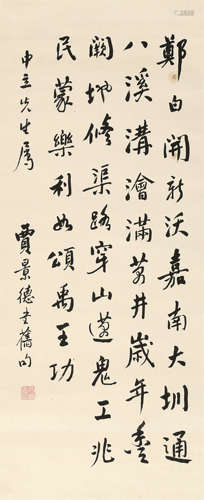 鄭白開新沃嘉南大圳通
八溪溝澮滿萬井歲年豐
闕地修渠路穿山邁鬼工兆
民蒙樂利如頌禹王功
申立先生屬
賈景德書舊句